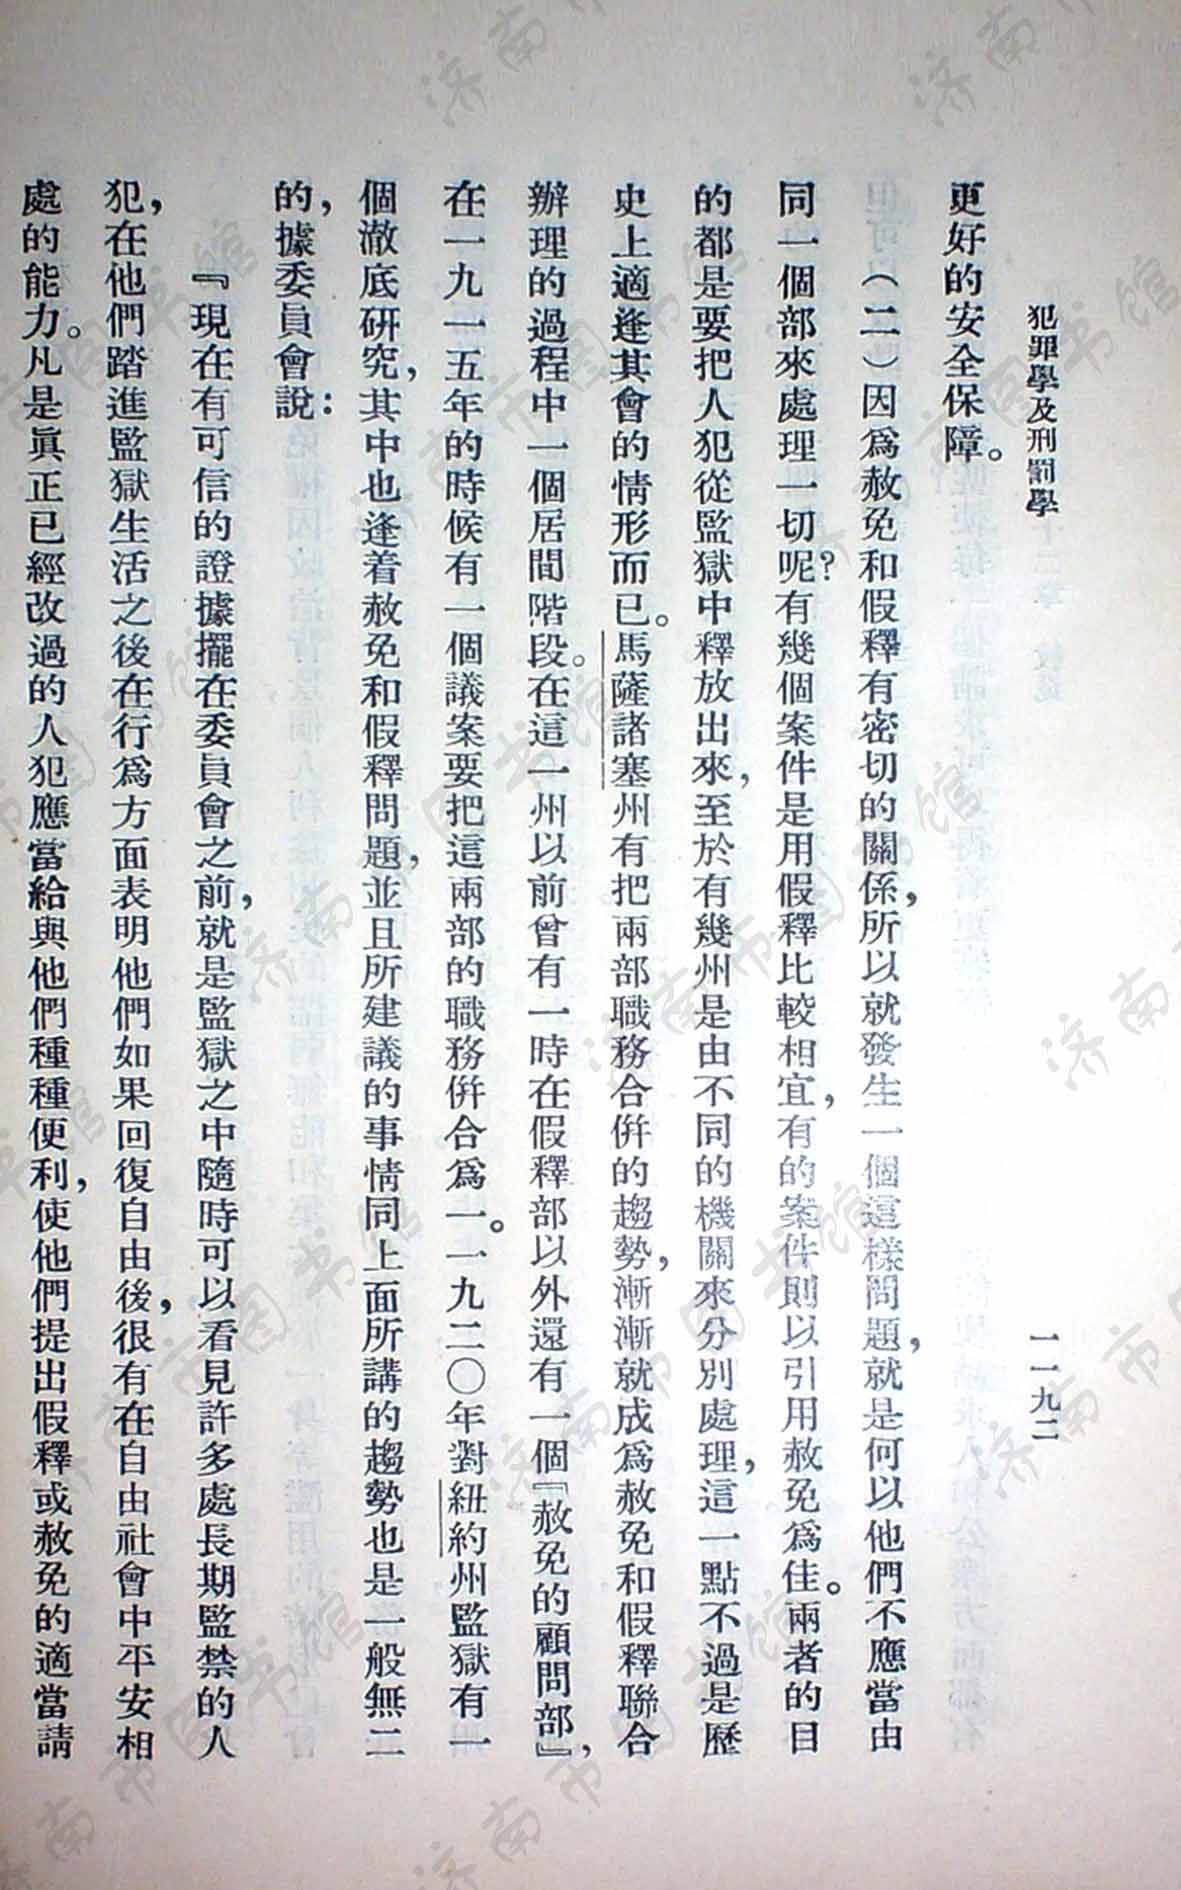 犯罪學及刑罰學
一一九二
更好的安全保障。
（二）因爲赦免和假釋有密切的關係，所以就發生一個這樣問題，就是何以他們不應當由
同一個部來處理一切呢？有幾個案件是用假釋比較相宜，有的案件則以引用赦免爲佳。兩者的目
的都是要把人犯從監獄中釋放出來，至於有幾州是由不同的機關來分別處理，這一點不過是歷
史上適逢其會的情形而已。馬薩諸塞州有把兩部職務合倂的趨勢，漸漸就成爲赦免和假釋聯合
辦理的過程中一個居間階段。在這一州以前曾有一時在假釋部以外還有一個『赦免的顧問部』，
在一九一五年的時候有一個議案要把這兩部的職務倂合爲一。一九二〇年對紐約州監獄有一
個澈底研究，其中也逢着赦免和假釋問題，並且所建議的事情同上面所講的趨勢也是一般無二
的，據委員會說：
『現在有可信的證據擺在委員會之前，就是監獄之中隨時可以看見許多處長期監禁的人
犯，在他們踏進監獄生活之後在行爲方面表明他們如果回復自由後，很有在自由社會中平安相
處的能力。凡是眞正已經改過的人犯應當給與他們種種便利，使他們提出假釋或赦免的適當請
济南市图书馆